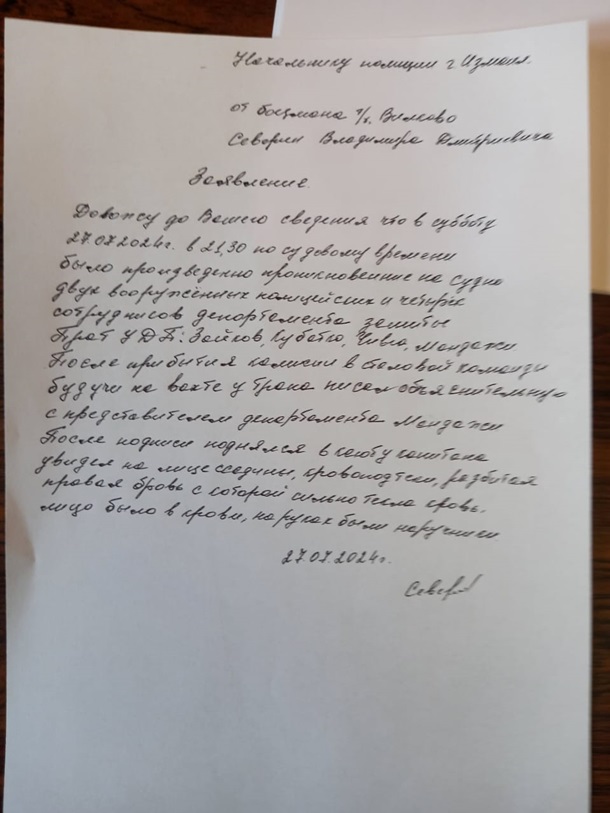 Начальнику полиции г Измаил.
от боцмана т/х. Вилково
Северин Владимира Дмитриевича
Заявление.
Довожу до Вашего сведения что в субботу
27.07.2024г. в 21,30 по судовому времени
было произведенно проникновение на судно
двух вооружённых полицейских и четырёх
сотрудников департамента защиты
УДП: Зайков, Кубатко, Чивга, Мандажи
После прибытия комисии в столовой команды
будучи на вахте у трапа писал объяснительную
с представителем департамента Мандажи
После подписи поднялся в каюту капитана
увидел на лице ссадины, кровоподтеки, разбитая
правая бровь с которой сильно текла кровь.
лицо было в крови, на руках были наручники
27.07.2024г.
Север